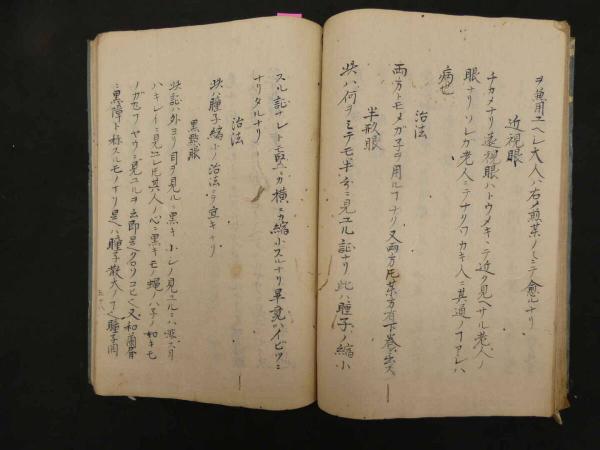 ヲ兼用エヘシ大人ハ右ノ煎薬ノミニテ愈ルナリ
近視眼
チカメナリ遠視眼ハトウメキヽテ近ク見ヘサル老人ノ
眼ナリソレガ老人ニテナリワカキ人ニ其通ノフアレハ
病也
治法
両方トモメガ子ヲ用ルフナリ又両方氏薬方有下巻ニ出ス
半形眼
此ハ何ヲミテモ半分ニ見エル証ナリ此ハ瞳子ノ縮小
スル証ナレトモ竪カ横ニカ縮小スルナリ畢竟ハイビツニ
ナリタルナリ
治法
此ハ瞳子縮小ノ治法ニテ宜キナリ
黒點眼
此証ハ外ヨリ目ヲ見ルニ黒キ小レノ見ユルニハ非ス目
ハキレイニ見ユレ氏其人ノ心ニ黒キモノ蝿ノハ子ノ如キモ
ノガセワヤウニ見ユルヲ云即是
又和蘭
ニ黒障ト称スルモノナリ是ハ瞳子散大ノ
瞳子開